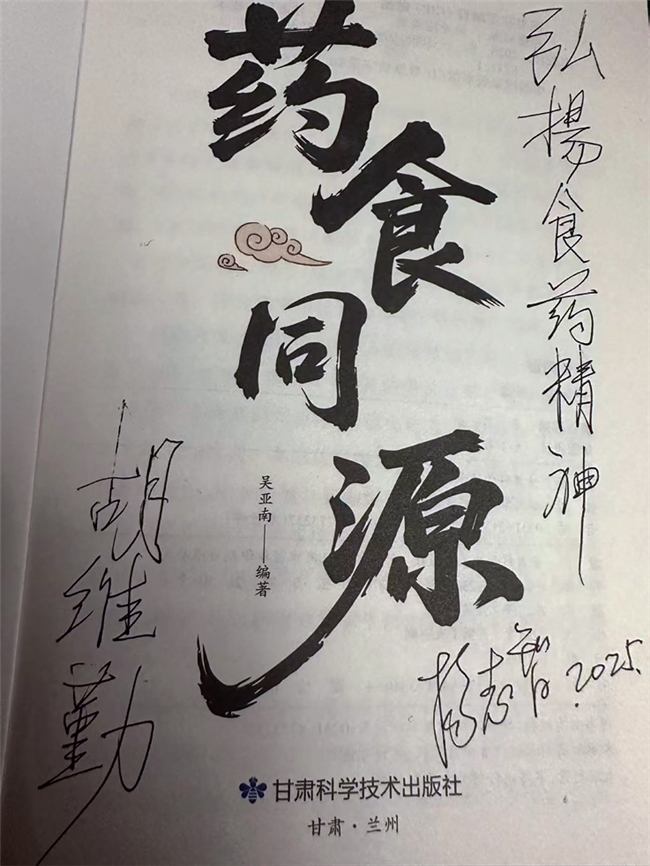 药食同源
吴亚南——编著
弘揚食药精神
胡维勤
杨志智.2025.
甘肃科学技术出版社
甘肃·兰州